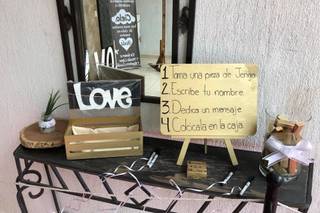 Love
1 Toma una pieza de Jenga
2. Escribe tu nombre
3 Dedica un mensaje
4 Colócala en la caja